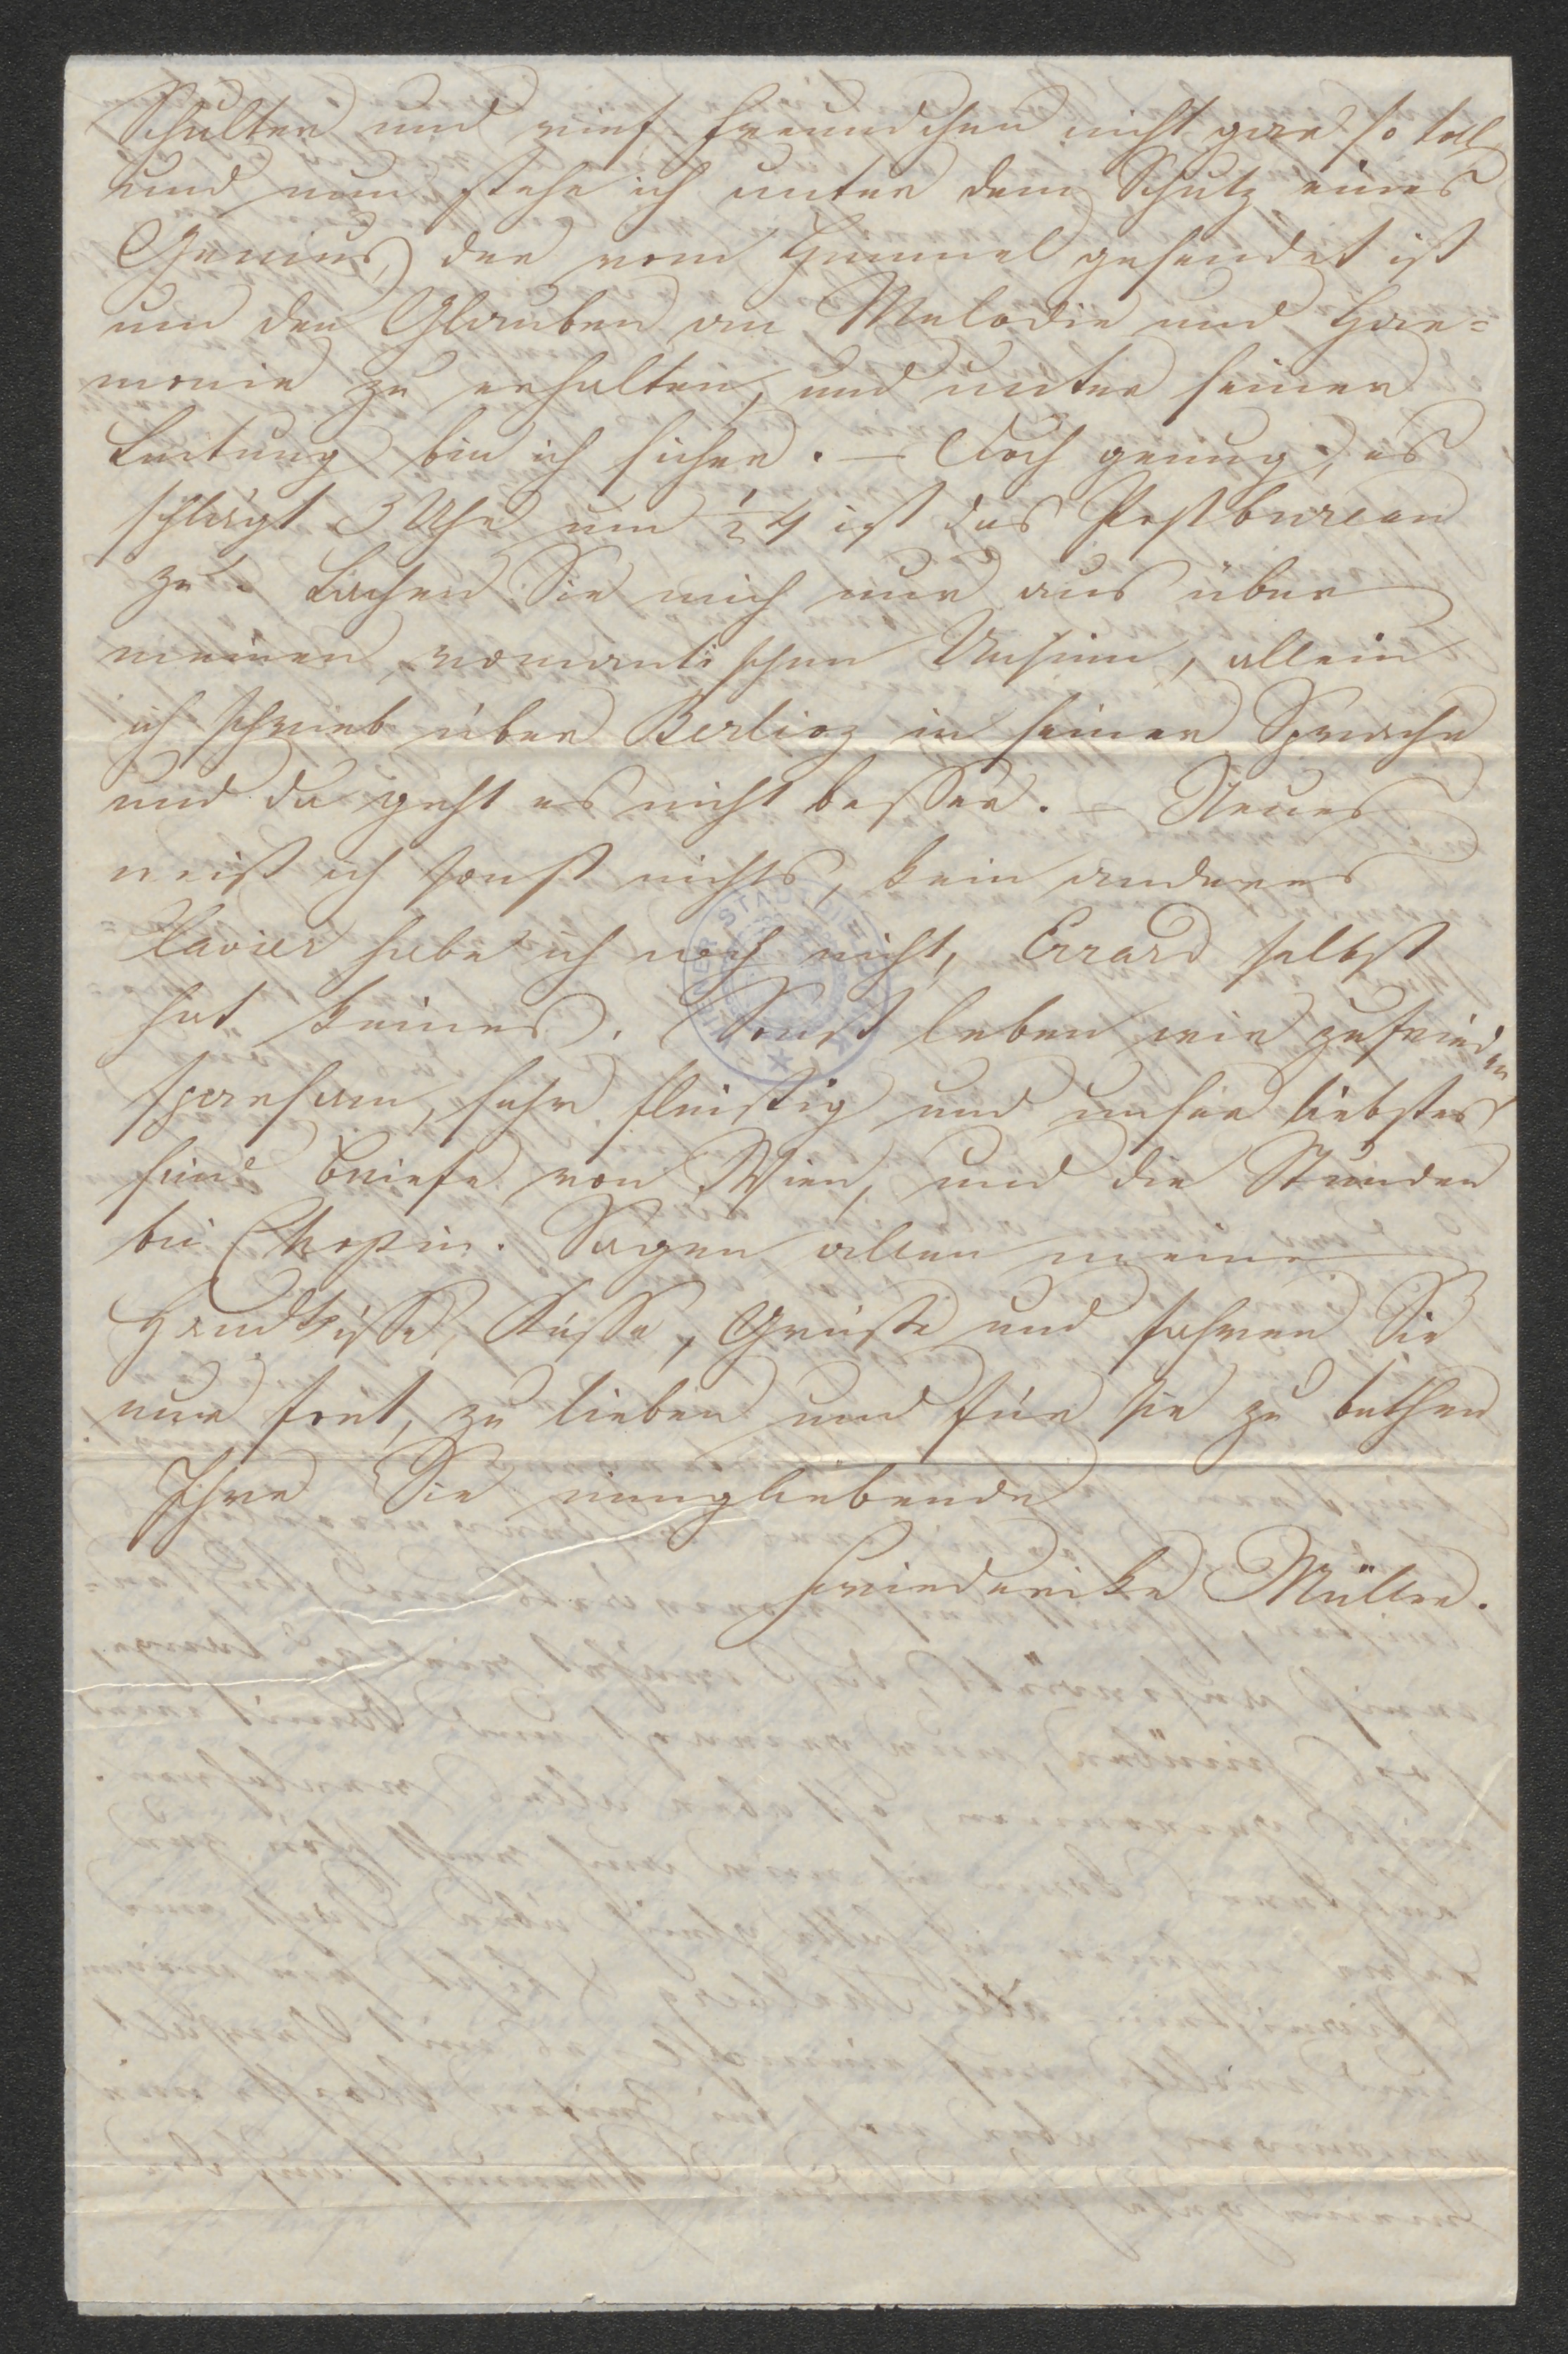 Schulter und rief Freundchen nicht gar so toll
und nun stehe ich unter dem Schutz eines
Genius, der vom Himmel gesendet ist
um den Glauben an Melodie und Har=
monie zu erhalten, und unter seiner
Leitung bin ich sicher. – Doch genug, es
schlägt 3 Uhr um ½ 4 ist das Postbureau
zu. Lachen Sie mich nur aus über
meinen romantischen Unsinn, allein
ich schrieb über Berlioz in seiner Sprache
und da geht es nicht besser. – Neues
weiß ich sonst nichts, kein anderes
Clavier habe ich noch nicht, Erard selbst
hat keines. Sonst leben wir zufrieden
sparsam, sehr fleißig und unser liebstes
sind Briefe von Wien, und die Stunden
bei Chopin. Sagen allen meine
Handküsse, Küsse, Grüße und fahren Sie
nur fort, zu lieben und für sie zu bethen
Ihre Sie innigliebende
Friederike Müller.